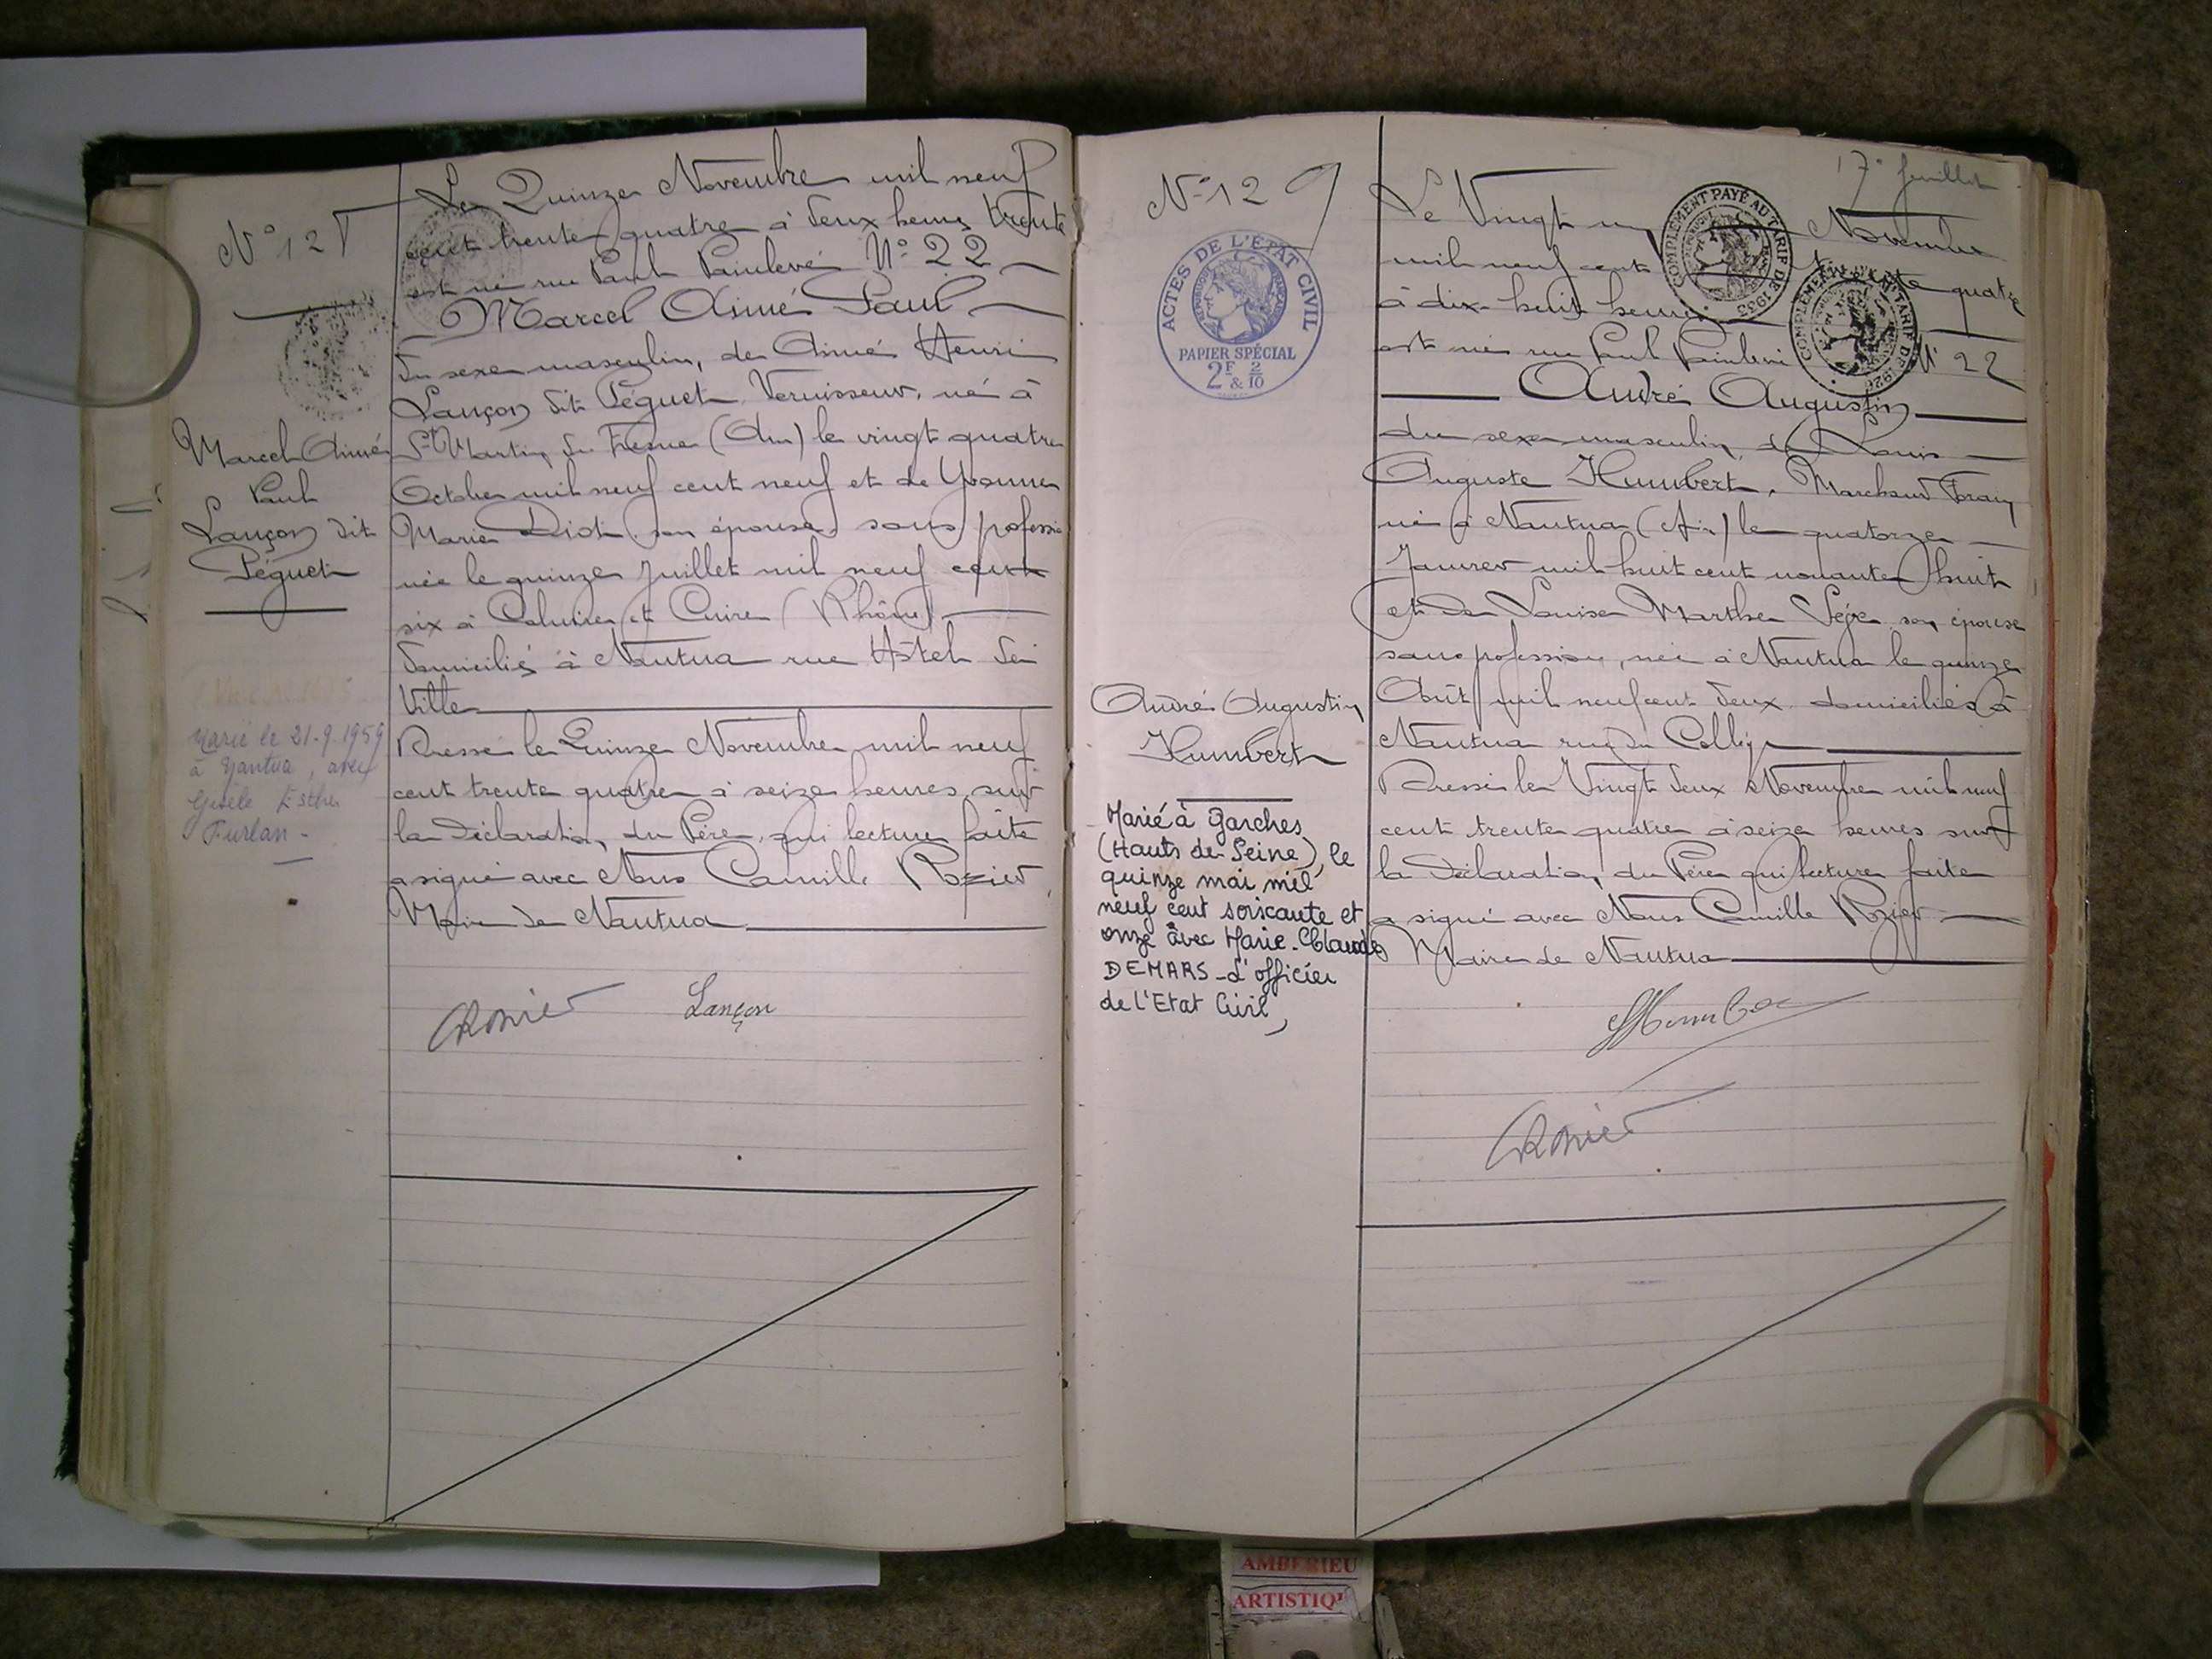 N° 128
Marcel Aimé
Paul
Lançon dit
Péguet
Marié le 21-9-1959
à Nantua, avec
Gisèle Esther
Furlan -
Le Quinze Novembre mil neuf
cent trente quatre à deux heures trente
est né rue Paul Painlevé N° 22
Marcel Aimé Paul
du sexe masculin, de Aimé Henri
Lançon dit Péguet Vernisseur, né à
St Martin du Fresne (Ain) le vingt quatre
Octobre mil neuf cent neuf et de Yvonne
Marie Diot son épouse sans profession
née le quinze Juillet mil neuf cent
six à Caluire et Cuire (Rhône)
domiciliés à Nantua rue Hôtel de
Ville
Dressé le Quinze Novembre mil neuf
cent trente quatre à seize heures sur
la déclaration du Père, qui lecture faite
a signé avec Nous Camille Rozier,
Maire de Nantua
CRozier Lançon
17e feuillet
N° 129
ACTES DE L'ÉTAT CIVIL
PAPIER SPÉCIAL
2F & 2/10
COMPLÉMENT PAYÉ AU TARIF DE 1933
André Augustin
Humbert
Marié à Garches
(Hauts de Seine), le
quinze mai mil
neuf cent soixante et
onze avec Marie-Claude
DEMARS - L'officier
de l'Etat Civil,
Le Vingt un Novembre
mil neuf cent trente quatre
à dix-huit heures
est né rue Paul Painlevé N° 22
André Augustin
du sexe masculin, de Louis
Auguste Humbert, Marchand Forain
né à Nantua (Ain) le quatorze
Janvier mil huit cent nonante huit
et de Louise Marthe son épouse
sans profession, née à Nantua le quinze
Août mil neuf cent deux domiciliés à
Nantua rue du Collège
Dressé le Vingt deux Novembre mil neuf
cent trente quatre à seize heures sur
la déclaration du Père qui lecture faite
a signé avec Nous Camille Rozier
Maire de Nantua
Humbert
CRozier
AMBERIEU
ARTISTIQ